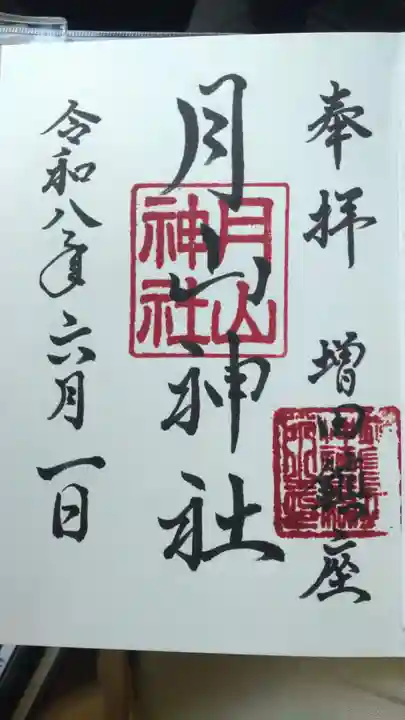 奉拝 増田 鎮座
月山神社
月山神社
令和八年六月一日